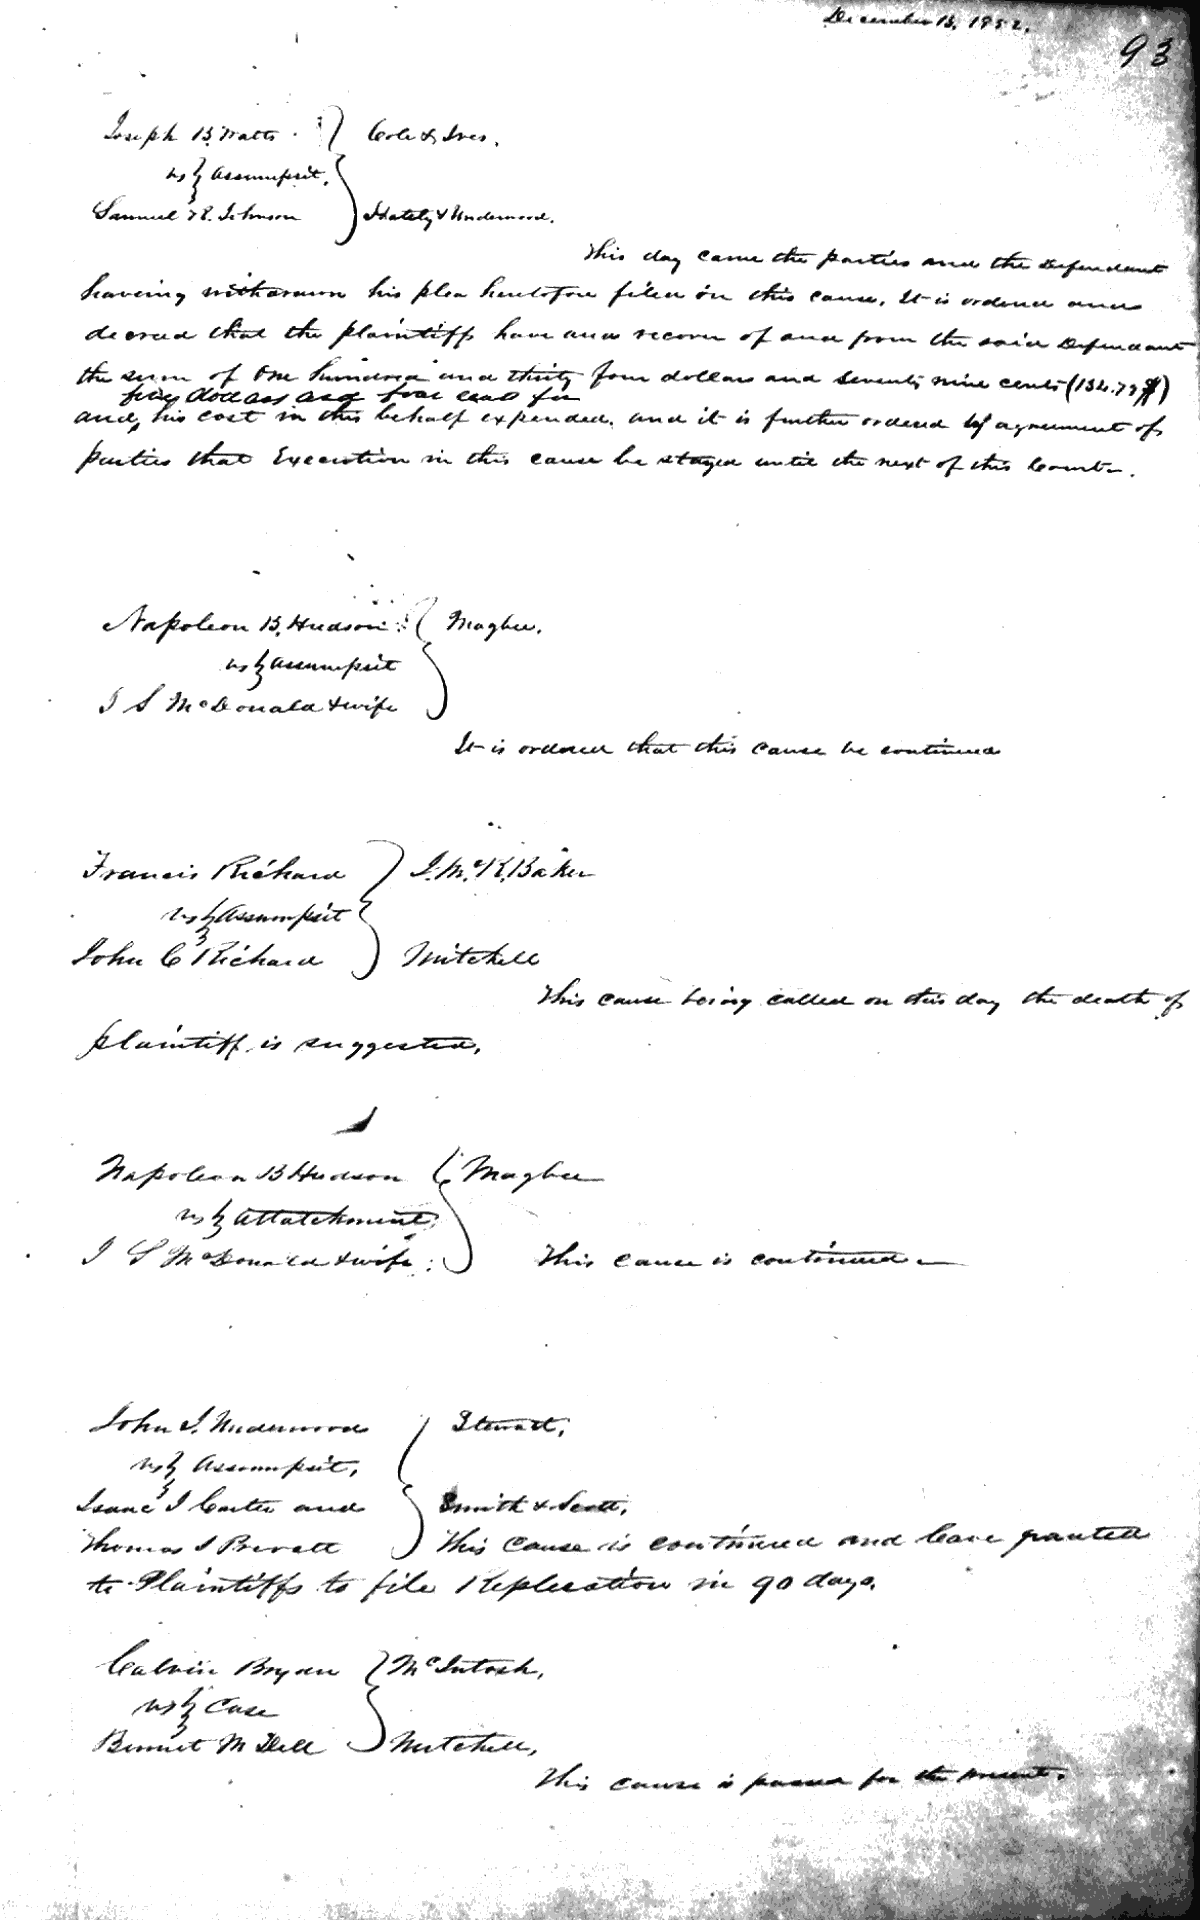 December 13, 1852,
93
Joseph B. Watts } Cole & Ives,
vs } Assumpsit,
Samuel R. Johnson } & Underwood.
This day came the parties and the Defendant
haveing withdrawn his plea heretofore filed in this cause. It is ordered and
decreed that the plaintiffs have and recover of and from the said Defendant
the sum of One hundred and thirty four dollars and seventy nine cents (134.79)
five dollars and four cents for
and, his cost in this behalf expended, and it is further ordered by agreement of
parties that Execution in this cause be stayed until the next of this Court.
Napoleon B. Hudson } Magbee,
vs } Assumpsit
I S McDonald & wife
It is ordered that this cause be continued
Francis Richard } J. Mc. R. Baker
vs } Assumpsit
John C Richard } Mitchell
This cause being called on this day the death of
plaintiff is suggested,
Napoleon B Hudson } Magbee
vs } Attatchment,
I S McDonald & wife } This cause is continued
John J. Underwood } Stewart,
vs } Assumpsit,
Isaac J Carter and } Smith & Scott,
Thomas J } This cause is continued and leave granted
to Plaintiffs to file Replication in 90 days,
Calvin Bryan } McIntosh,
vs } Case
Bennet M Dell } Mitchell,
This cause is passed for the present.